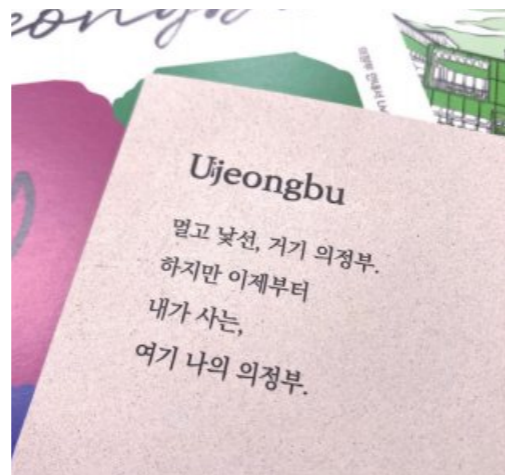 Ujeongbu
멀고 낯선, 거기 의정부.
하지만 이제부터
내가 사는,
여기 나의 의정부.